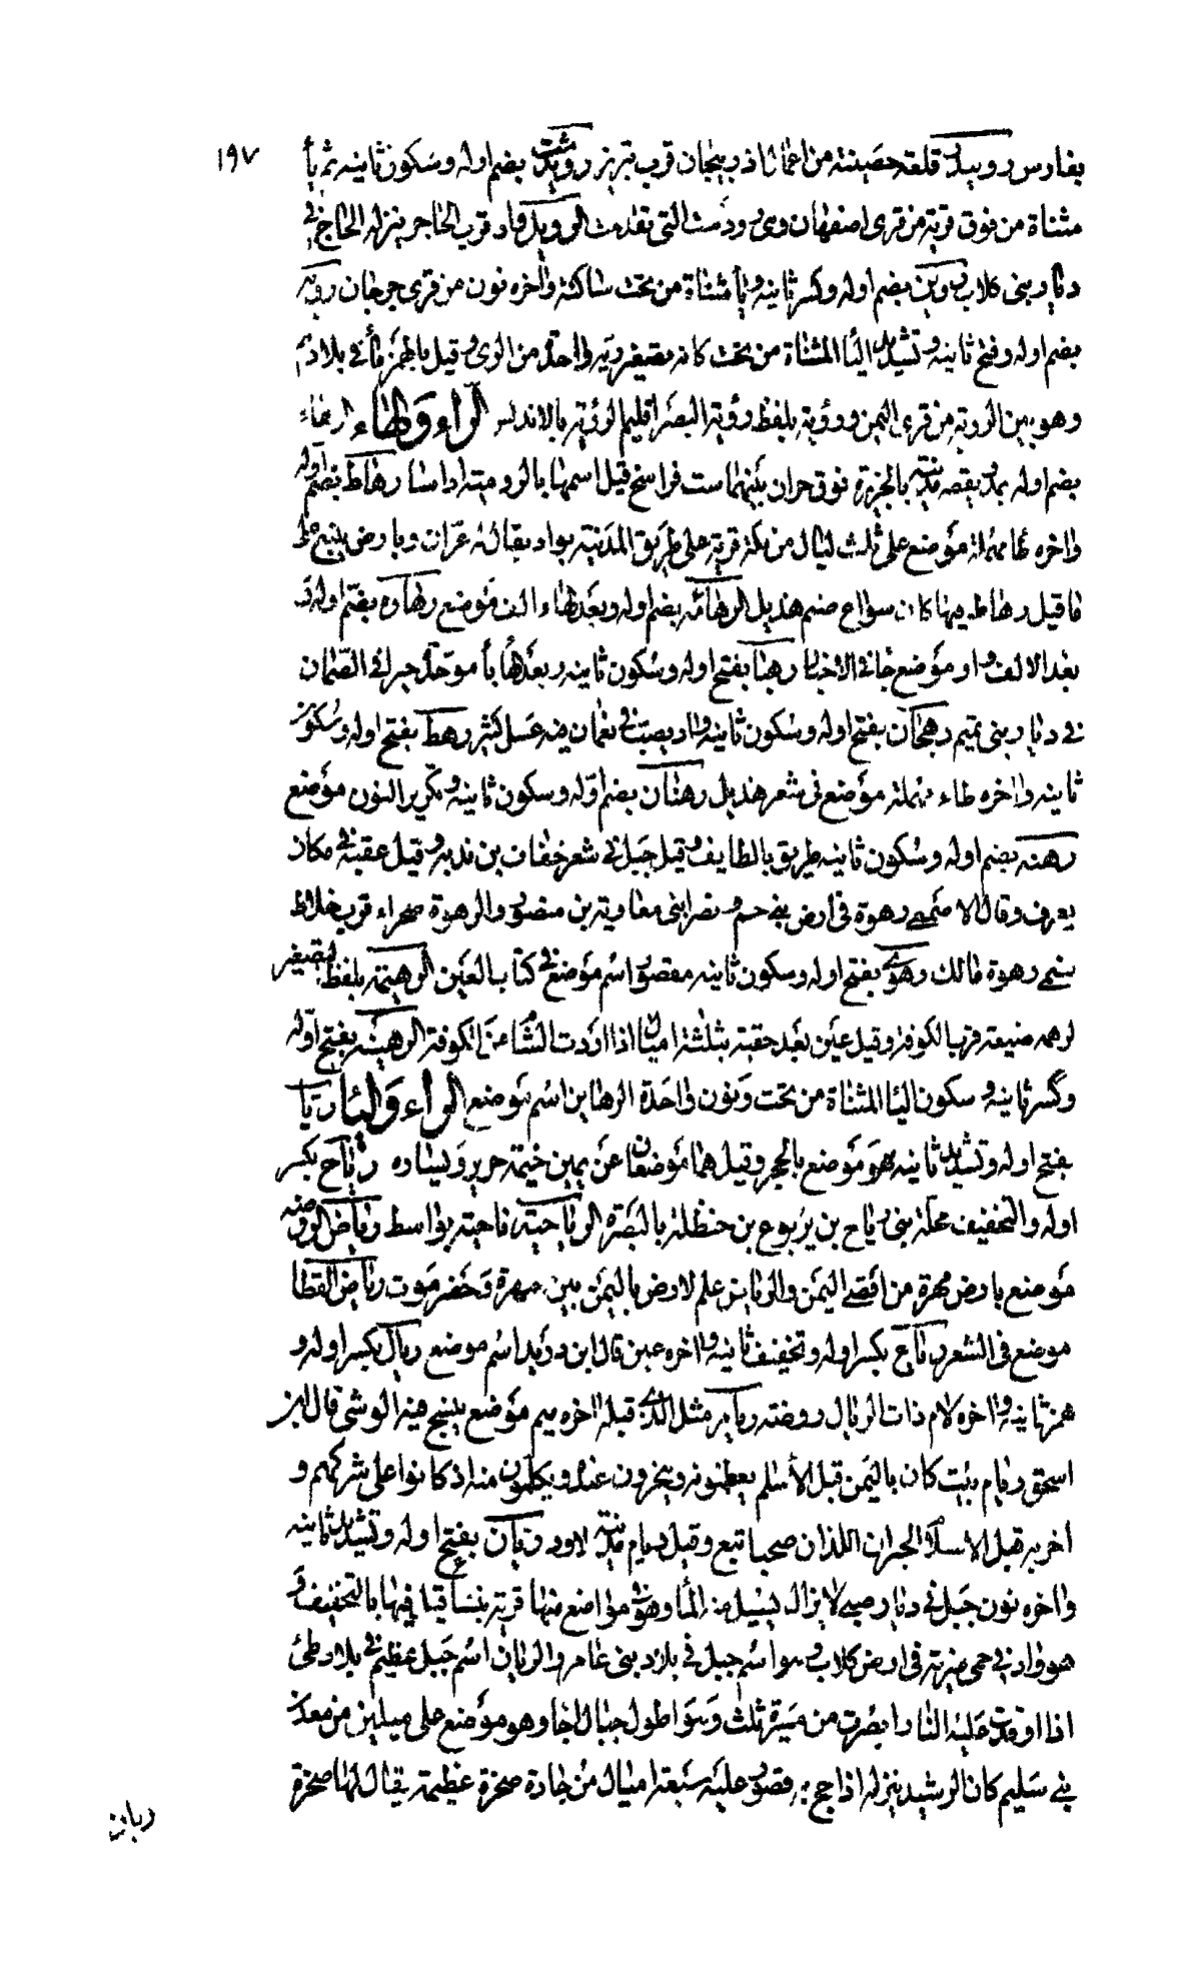 ١٩٧
بفارس رويين قلعة حصينة من اعمال اذربيجان قرب تبريز رويدشت بضم اوله وسكون ثانيه ثم يأ
مثناة من فوق قرية من قرى اصفهان وهى رودشت التى تقدمت الرويل واد قرب الحاجر ينزله الحاج فى
ديار بنى كلاب روين بضم اوله وكسر ثانيه ويأ مثناة من تحت ساكنة واخره نون من قرى جرجان روية
بضم اوله وفتح ثانيه وتشديد اليأ المثناة من تحت كانه تصغير رية واحدة من الرى وقيل بالهمز مأ فى بلادهم
وهو بين الروية من قرى اليمن ورؤية بلفظ رؤية البصر اقليم الرؤية بالاندلس الراء والهاء ارهاء
بضم اوله يمد ويقصر مدينة بالجزيرة فوق حران بينهما ست فراسخ قيل اسمها بالرومية اداسا رهاط بضم اوله
واخره طا مهملة موضع على ثلث ليال من مكة قرية على طريق المدينة بواد يقال له غران وبارض ينبع على
ما قيل رهاط بها كان سواع صنم هذيل الرهامة بضم اوله وبعد الهاء الف موضع رهاوة بفتم اوله
بعد الالف واو موضع جا فى الاخبار رهبا بفتح اوله وسكون ثانيه وبعدها بأ موحدة خبرا فى الصمان
فى ديار بنى تميم رهجان بفتح اوله وسكون ثانيه واد يصب فى نعمان فيه عسل كثير رهط بفتح اوله وسكون
ثانيه واخره طاء مهملة موضع فى شعر هذيل رهنان بضم اوله وسكون ثانيه وتكرير النون موضع
رهنة بضم اوله وسكون ثانيه طريق بالطايف وقيل جبل فى شعر خفاف بن ندبة وقيل عقبة فى مكان
يعرف وقال الاصمعى رهوة فى ارض بنى جشم ونصر ابنى معاوية بن منصور والرهوة صحراء قرب خلاط
يسمى رهوة مالك رهوى بفتح اوله وسكون ثانيه مقصور اسم موضع فى كتاب العين الرهيمة بلفظ تصغير
لرهمه ضيعة قرب الكوفة وقيل عين بعد خفية بثلثة اميال اذا اردت الشام عن الكوفة الرهينة بفتح اوله
وكسر ثانيه وسكون اليأ المثناة من تحت ونون واحدة الرهاين اسم موضع الراء واليأ ريا
بفتح اوله وتشديد ثانيه هو موضع بالحجر وقيل هما موضعان عن يمين خيمة حرير ويساره رياح بكسر
اوله والتخفيف محلة بنى رياح بن يربوع بن حنظلة بالبصرة الرياحية ناحية بواسط رياض الروضة
موضع بارض مهرة من اقصى اليمن والرياض علم لارض باليمن بين مهرة وحضرموت رياض القطا
موضع فى الشعر رياع بكسر اوله وتخفيف ثانيه واخره عين قال ابن دريد اسم موضع ريال بكسر اوله و
همز ثانيه واخره لام ذات الريال روضة ريام مثل الذى قبله اخره ميم موضع ينسج فيه الوشى قال ابن
اسحق ريام بيت كان باليمن قبل الأسلم يعظمونه وينحرون عنده ويكلمون منه اذ كانوا على شركهم و
اخربه قبل الاسلام الحبران اللذان صحبا تبع وقيل ريام مدينة لاود ريان بفتح اوله وتشديد ثانيه
واخره نون جبل فى ديار طى لا يزال يسيل منه المأ وهو فى مواضع منها قرية بنسا قيل فيها بالتخفيف و
هو واد فى حمى ضرية فى ارض كلاب وهو اسم جبل فى بلاد بنى عامر والريان اسم جبل عظيم فى بلاد طئ
اذا اوقدت عليه النار ابصرت من مسيرة ثلث وهو اطول جبال اجا وهو موضع على ميلين من معدن
بنى سليم كان الرشيد ينزله اذا حج به قصور عليه سبعة اميال من جادة صخرة عظيمة يقال لها صخرة
ريان